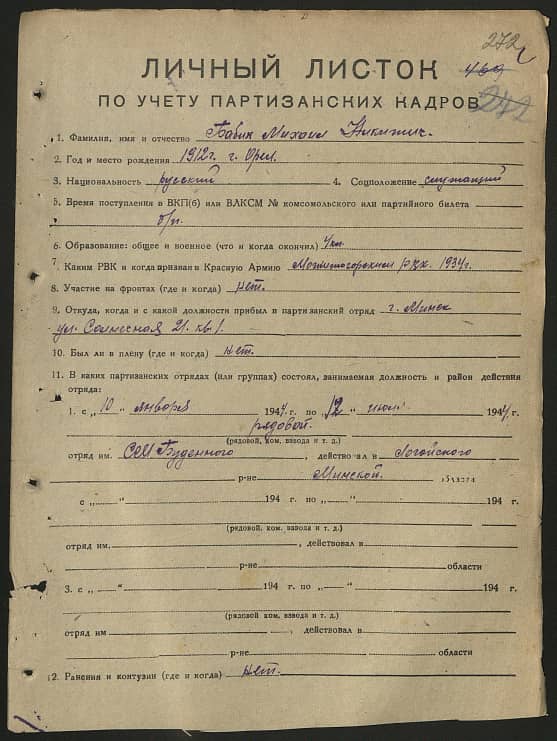 272
469
272
ЛИЧНЫЙ ЛИСТОК
ПО УЧЕТУ ПАРТИЗАНСКИХ КАДРОВ
1. Фамилия, имя и отчество Бабик Михаил Никитич.
2. Год и место рождения 1912 г. г. Орел
3. Национальность русский 4. Соцположение служащий
5. Время поступления в ВКП(б) или ВЛКСМ № комсомольского или партийного билета
б/п.
6. Образование: общее и военное (что и когда окончил) 4 кл.
7. Каким РВК и когда призван в Красную Армию 1934 г.
8. Участие на фронтах (где и когда) нет.
9. Откуда, когда и с какой должности прибыл в партизанский отряд г. Минск
ул. 21. кв 1.
10. Был ли в плену (где и когда) нет.
11. В каких партизанских отрядах (или группах) состоял, занимаемая должность и район действия
отряда:
1. с „ 10 " января 1944 г. по „ 12 " июля 1944 г.
рядовой.
(рядовой, ком. взвода и т. д.)
отряд им. Буденного, действовал в Логойского
р-не Минской. области
с „ " 194 г. по „ " 194 г.
(рядовой, ком. взвода и т. д.)
отряд им. , действовал в
р-не области
3. с „ " 194 г. по „ " 194 г.
(рядовой, ком. взвода и т. д.)
отряд им , действовал в
р-не области
2. Ранения и контузии (где и когда) нет.